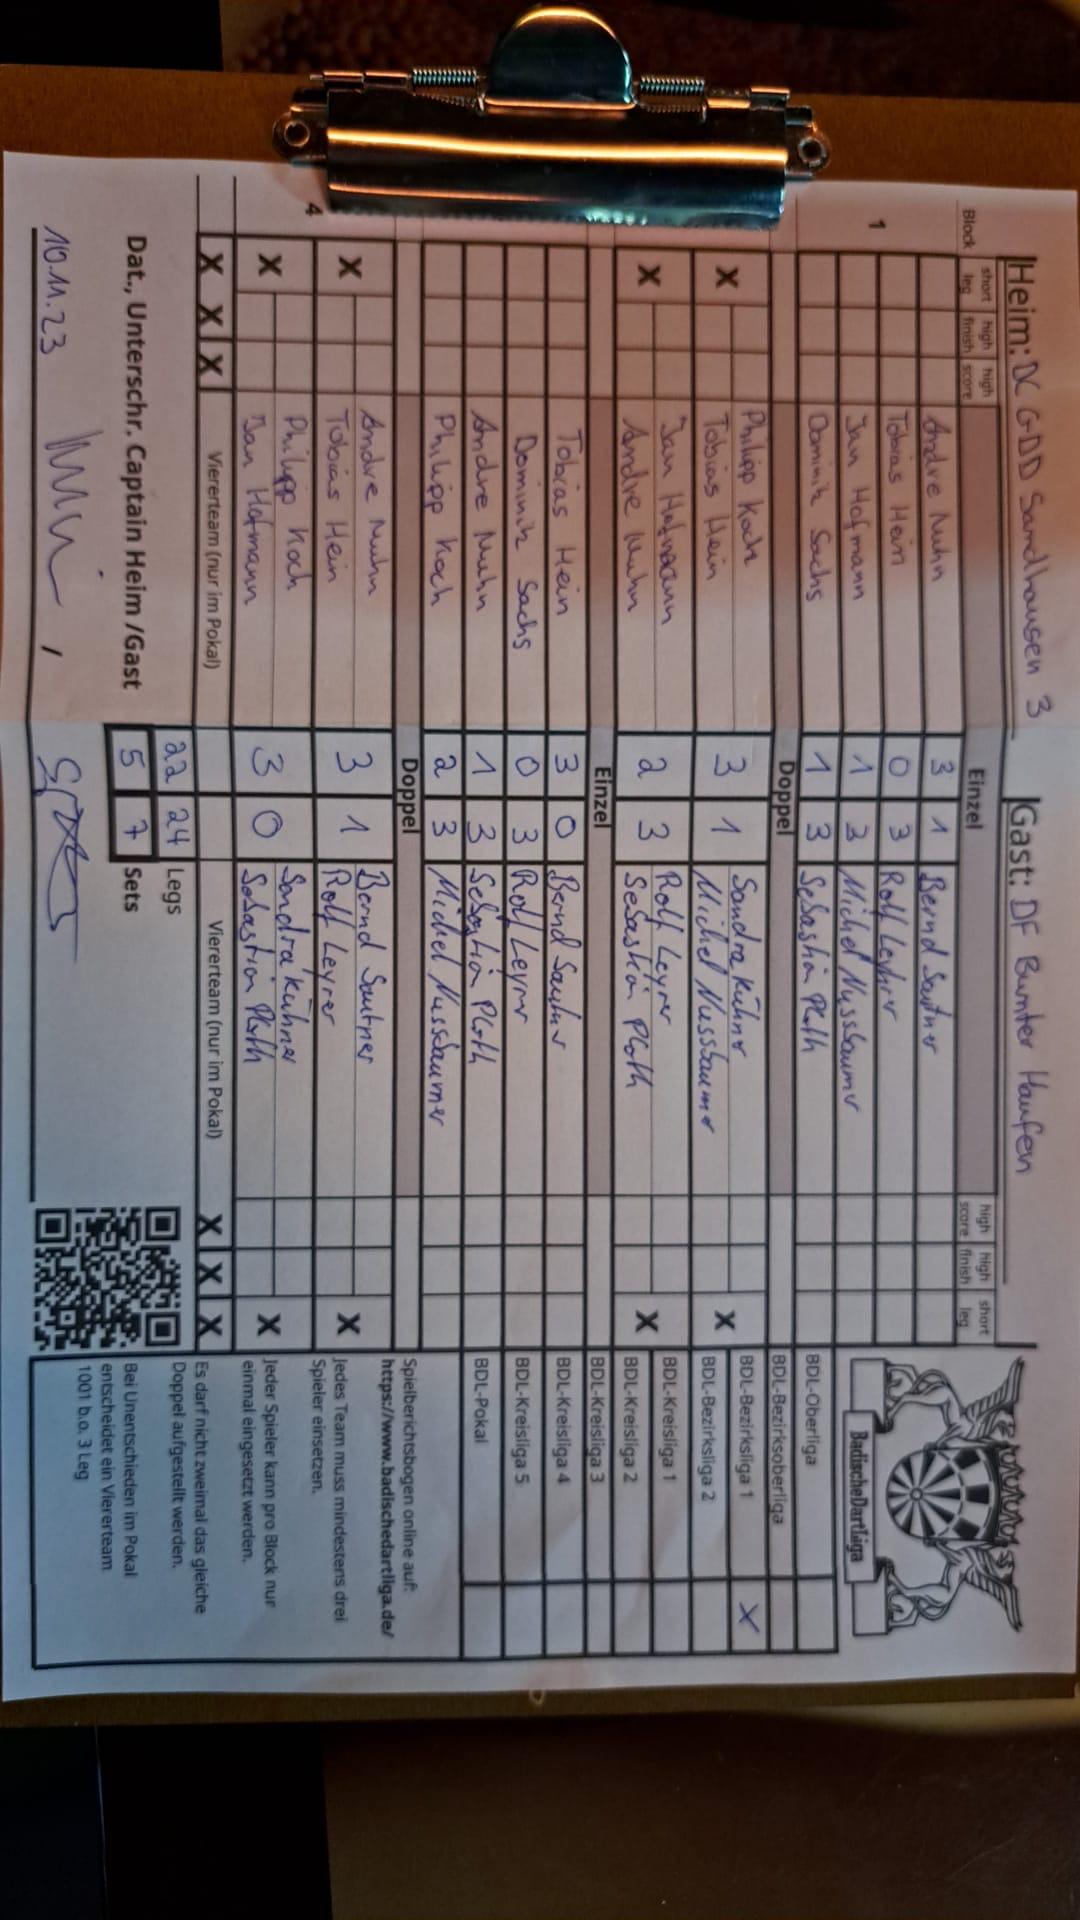 Heim: DC GDD Sandhausen 3 Gast: DF Bunter Haufen
Block short leg high finish high score Einzel high score high finish short leg
1
Andre Nuhn 3 1 Bernd Sautner
Tobias Hein 0 3 Rolf Leyrer
Jan Hofmann 1 3 Michel Nussbaumer
Dominik Sachs 1 3 Sebastian Plath
Doppel
X Philipp Koch 3 1 Sandra Kühner X
Tobias Hein Michel Nussbaumer
X Jan Hofmann 2 3 Rolf Leyrer X
Andre Nuhn Sebastian Plath
Einzel
Tobias Hein 3 0 Bernd Sautner
Dominik Sachs 0 3 Rolf Leyrer
Andre Nuhn 1 3 Sebastian Plath
Philipp Koch 2 3 Michel Nussbaumer
Doppel
4
X Andre Nuhn 3 1 Bernd Sautner X
Tobias Hein Rolf Leyrer
X Philipp Koch 3 0 Sandra Kühner X
Jan Hofmann Sebastian Plath
X X X Viererteam (nur im Pokal) Viererteam (nur im Pokal) X X X
22 24 Legs
Dat., Unterschr. Captain Heim /Gast 5 7 Sets
10.11.23
BadischeDartLiga
BDL-Oberliga
BDL-Bezirksoberliga
BDL-Bezirksliga 1 X
BDL-Bezirksliga 2
BDL-Kreisliga 1
BDL-Kreisliga 2
BDL-Kreisliga 3
BDL-Kreisliga 4
BDL-Kreisliga 5
BDL-Pokal
Spielberichtsbogen online auf:
https://www.badischedartliga.de/
Jedes Team muss mindestens drei
Spieler einsetzen.
Jeder Spieler kann pro Block nur
einmal eingesetzt werden.
Es darf nicht zweimal das gleiche
Doppel aufgestellt werden.
Bei Unentschieden im Pokal
entscheidet ein Viererteam
1001 b.o. 3 Leg